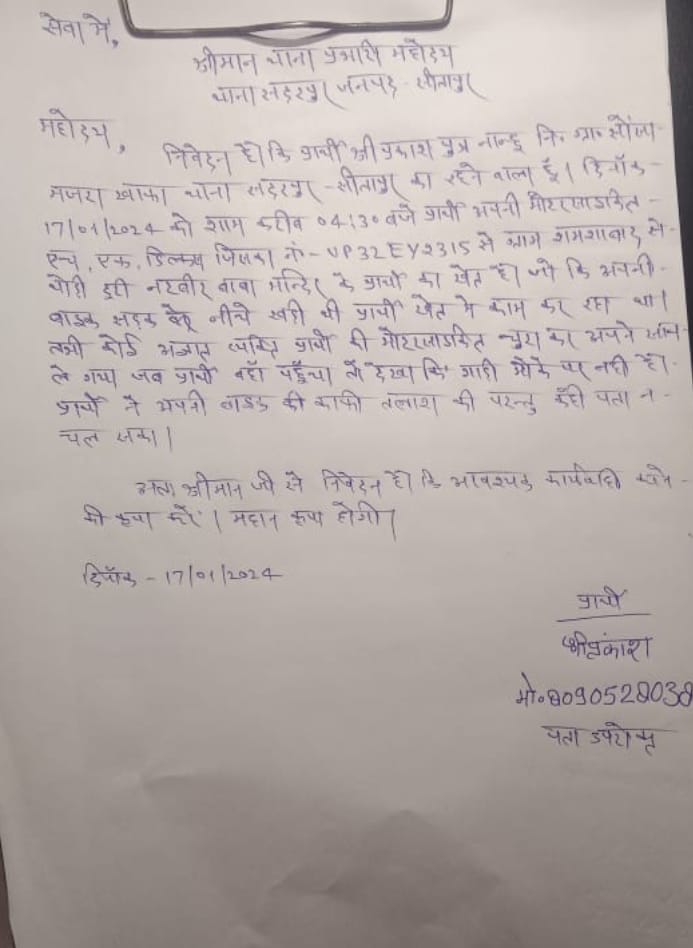 सेवा में,
श्रीमान थाना प्रभारी महोदय
थाना सदरपुर जनपद - सीतापुर
महोदय,
निवेदन है कि प्रार्थी श्री प्रकाश पुत्र नान्हू नि० ग्रा०
मजरा खाफा थाना सदरपुर - सीतापुर का रहने वाला हूँ। दिनाँक -
17/01/2024 को शाम करीब 04:30 बजे प्रार्थी अपनी मोटरसाइकिल -
एच, एफ, डिलक्स जिसका नं० - UP32EY2315 से ग्राम शमशाबाद से -
थोडी दूरी नरवीर बाबा मन्दिर के प्रार्थी का खेत है। जो कि अपनी -
बाइक सडक के नीचे खडी थी प्रार्थी खेत मे काम कर रहा था।
तभी कोई अज्ञात व्यक्ति प्रार्थी की मोटरसाइकिल चुरा कर अपने साथ -
ले गया जब प्रार्थी वहाँ पहुँचा तो देखा कि गाडी मौके पर नही है।
प्रार्थी ने अपनी बाइक की काफी तलाश की परन्तु कही पता न -
चल सका।
अतः श्रीमान जी से निवेदन है। कि आवश्यक कार्यवाही करने -
की कृपा करें। महान कृपा होगी।
दिनाँक - 17/01/2024
प्रार्थी
श्रीप्रकाश
मो०8090528038
पता उपरोक्त